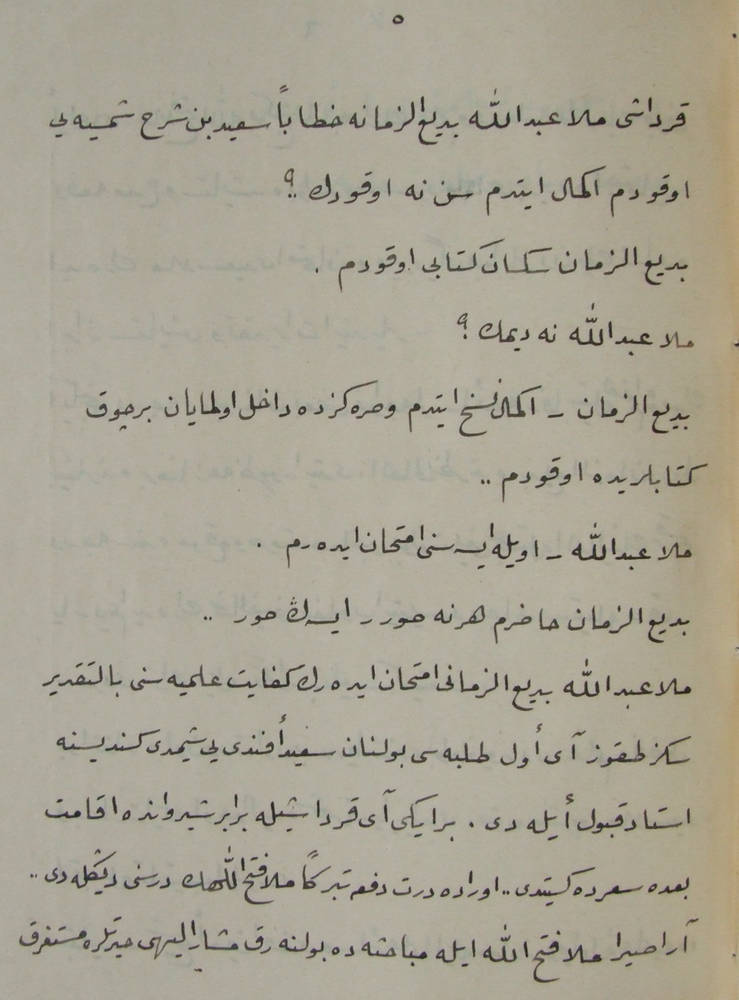 ٥
قرداشى ملا عبدالله بديع الزمانه خطاباً سعيد بن شرح شمسيه يى
اوقودم اكمال ايتدم سن نه اوقودك ؟
بديع الزمان سكسان كتابى اوقودم .
ملا عبدالله نه ديمك ؟
بديع الزمان ـ اكمال نسخ ايتدم وصره كزده داخل اولمايان برچوق
كتابلريده اوقودم ..
ملا عبدالله ـ اويله ايسه سنى امتحان ايده رم .
بديع الزمان حاضرم هرنه صورر ايسه ڭ صور ..
ملا عبدالله بديع الزمانى امتحان ايده رك كفايت علميه سنى بالتقدير
سكز طقوز آى أول طلبه سى بولنان سعيد أفندى يى شيمدى كنديسنه
استاد قبول أيله دى . بر ايكى آى قرداشيله برابر شيروانده اقامت
بعده سعرده كيتدى .. اوراده درت دفعه تبركاً ملا فتح اللهك درسنى ديڭله دى ..
آرا صيرا ملا فتح الله ايله مباحثه ده بولنه رق مشار اليهى حيرتلره مستغرق